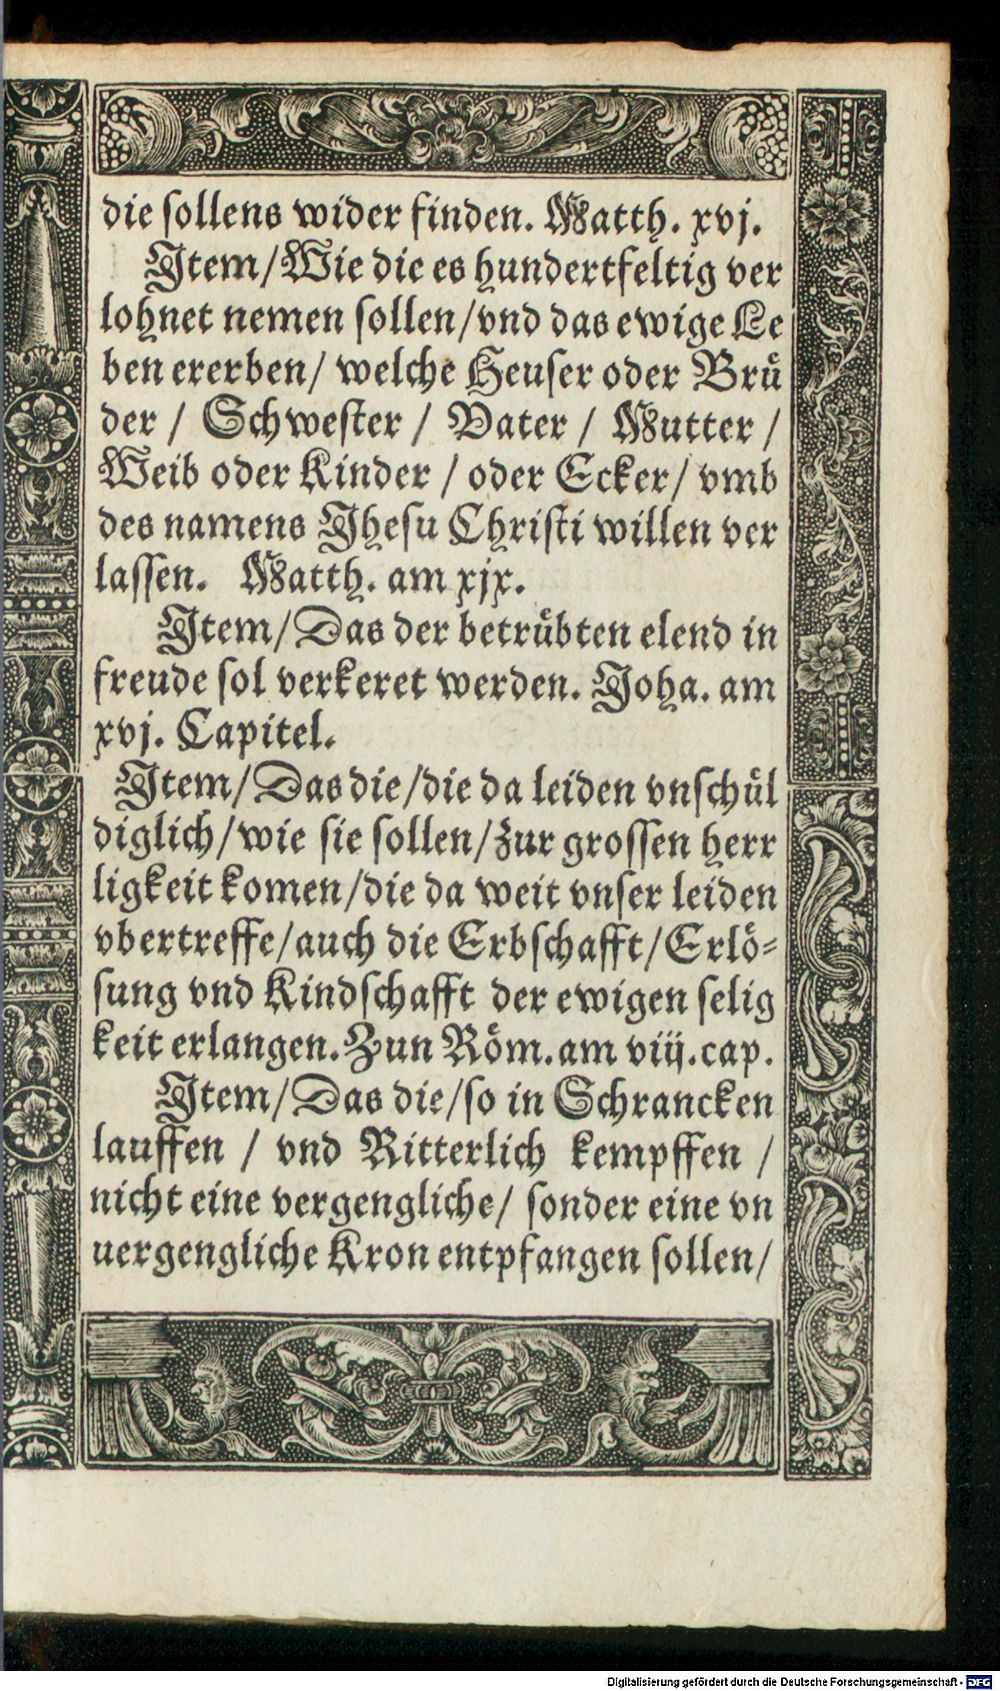 die sollens wider finden. Matth. xvj.
Jtem/Wie die es hundertfeltig ver
lohnet nemen sollen/vnd das ewige Le
ben ererben/ welche Heuser oder Bruͤ
der / Schwester / Vater / Mutter /
Weib oder Kinder / oder Ecker/ vmb
des namens Jhesu Christi willen ver
lassen. Matth. am xjx.
Jtem/Das der betruͤbten elend in
freude sol verkeret werden. Joha. am
xvj. Capitel.
Jtem/Das die/die da leiden vnschuͤl
diglich/wie sie sollen/zur grossen herr
ligkeit komen/die da weit vnser leiden
vbertreffe/auch die Erbschafft/Erloͤ-
sung vnd Kindschafft der ewigen selig
keit erlangen. Zun Roͤm. am viij. cap.
Jtem/Das die/so in Schrancken
lauffen / vnd Ritterlich kempffen /
nicht eine vergengliche/ sonder eine vn
uergengliche Kron entpfangen sollen/
Digitalisierung gefördert durch die Deutsche Forschungsgemeinschaft - DFG